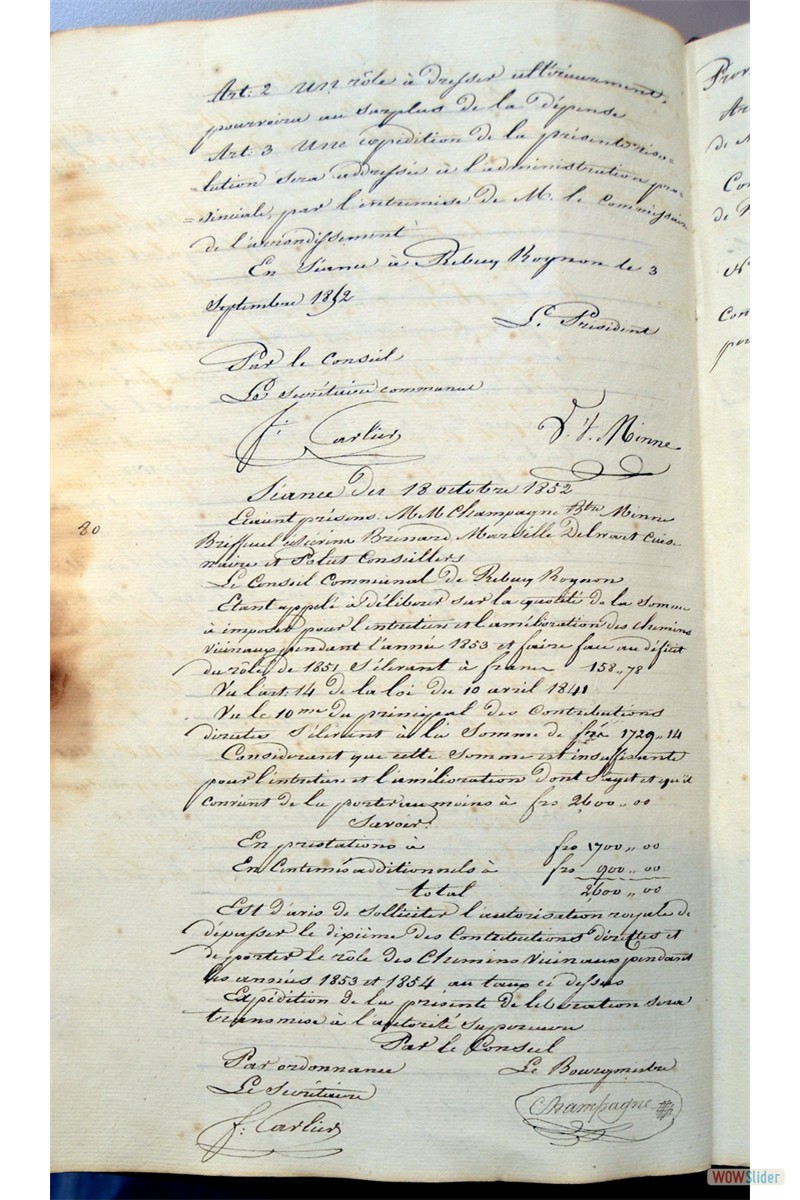 Art: 2 Un rôle à dresser ultérieurement,
pourvoira au surplus de la dépense
Art: 3 Une expédition de la présente réso=
=lution sera addressée à l'administration pro=
=vinciale, par l'intremise de M. le Commissaire
de l'arrondissement
En Séance à Rebecq Rognon le 3
Septembre 1852
Le Président
Par le Conseil
Le Secrétaire communal
f: Carlier
Minne
Séance du 18 octobre 1852
80
Etaient présens MM Champagne Btn Minne
Brenard Marseille Delwart Cuis=
naire et Polet Conseillers
Le Conseil Communal de Rebecq Rognon
Etant appelé à délibérer sur la quotité de la Somme
à imposer pour l'entretien et l'amélioration des chemins
Vicinaux pendant l'année 1853 et faire face au déficit
du rôle de 1851 S'élevant à francs 158,,78
Vu l'art: 14 de la loi du 10 avril 1841
Vu le 10me du principal des Contributions
directes S'élévent à la Somme de frs 1729,,14
Considérant que cette Somme est insuffisante
pour l'entretien et l'amélioration dont S'agit et qu'il
convient de la porter au moins à frs 2600,,00
Savoir:
En prestations à frs 1700,,00
En Centimes additionnels à frs 900,,00
total 2600,,00
Est d'avis de Solliciter l'autorisation royale de
dépasser le dixième des Contributions directes et
de porter le rôle des Chemins Vicinaux pendant
les années 1853 et 1854 au taux ci dessus
Expédition de la présente délibération sera
transmise à l'autorité Supérieure
Par le Conseil
Par ordonnance Le Bourgmestre
Le Secrétaire
f. Carlier
Champagne
Prov
Ar
de
Con
de
N
Con
pou
WOWSlider